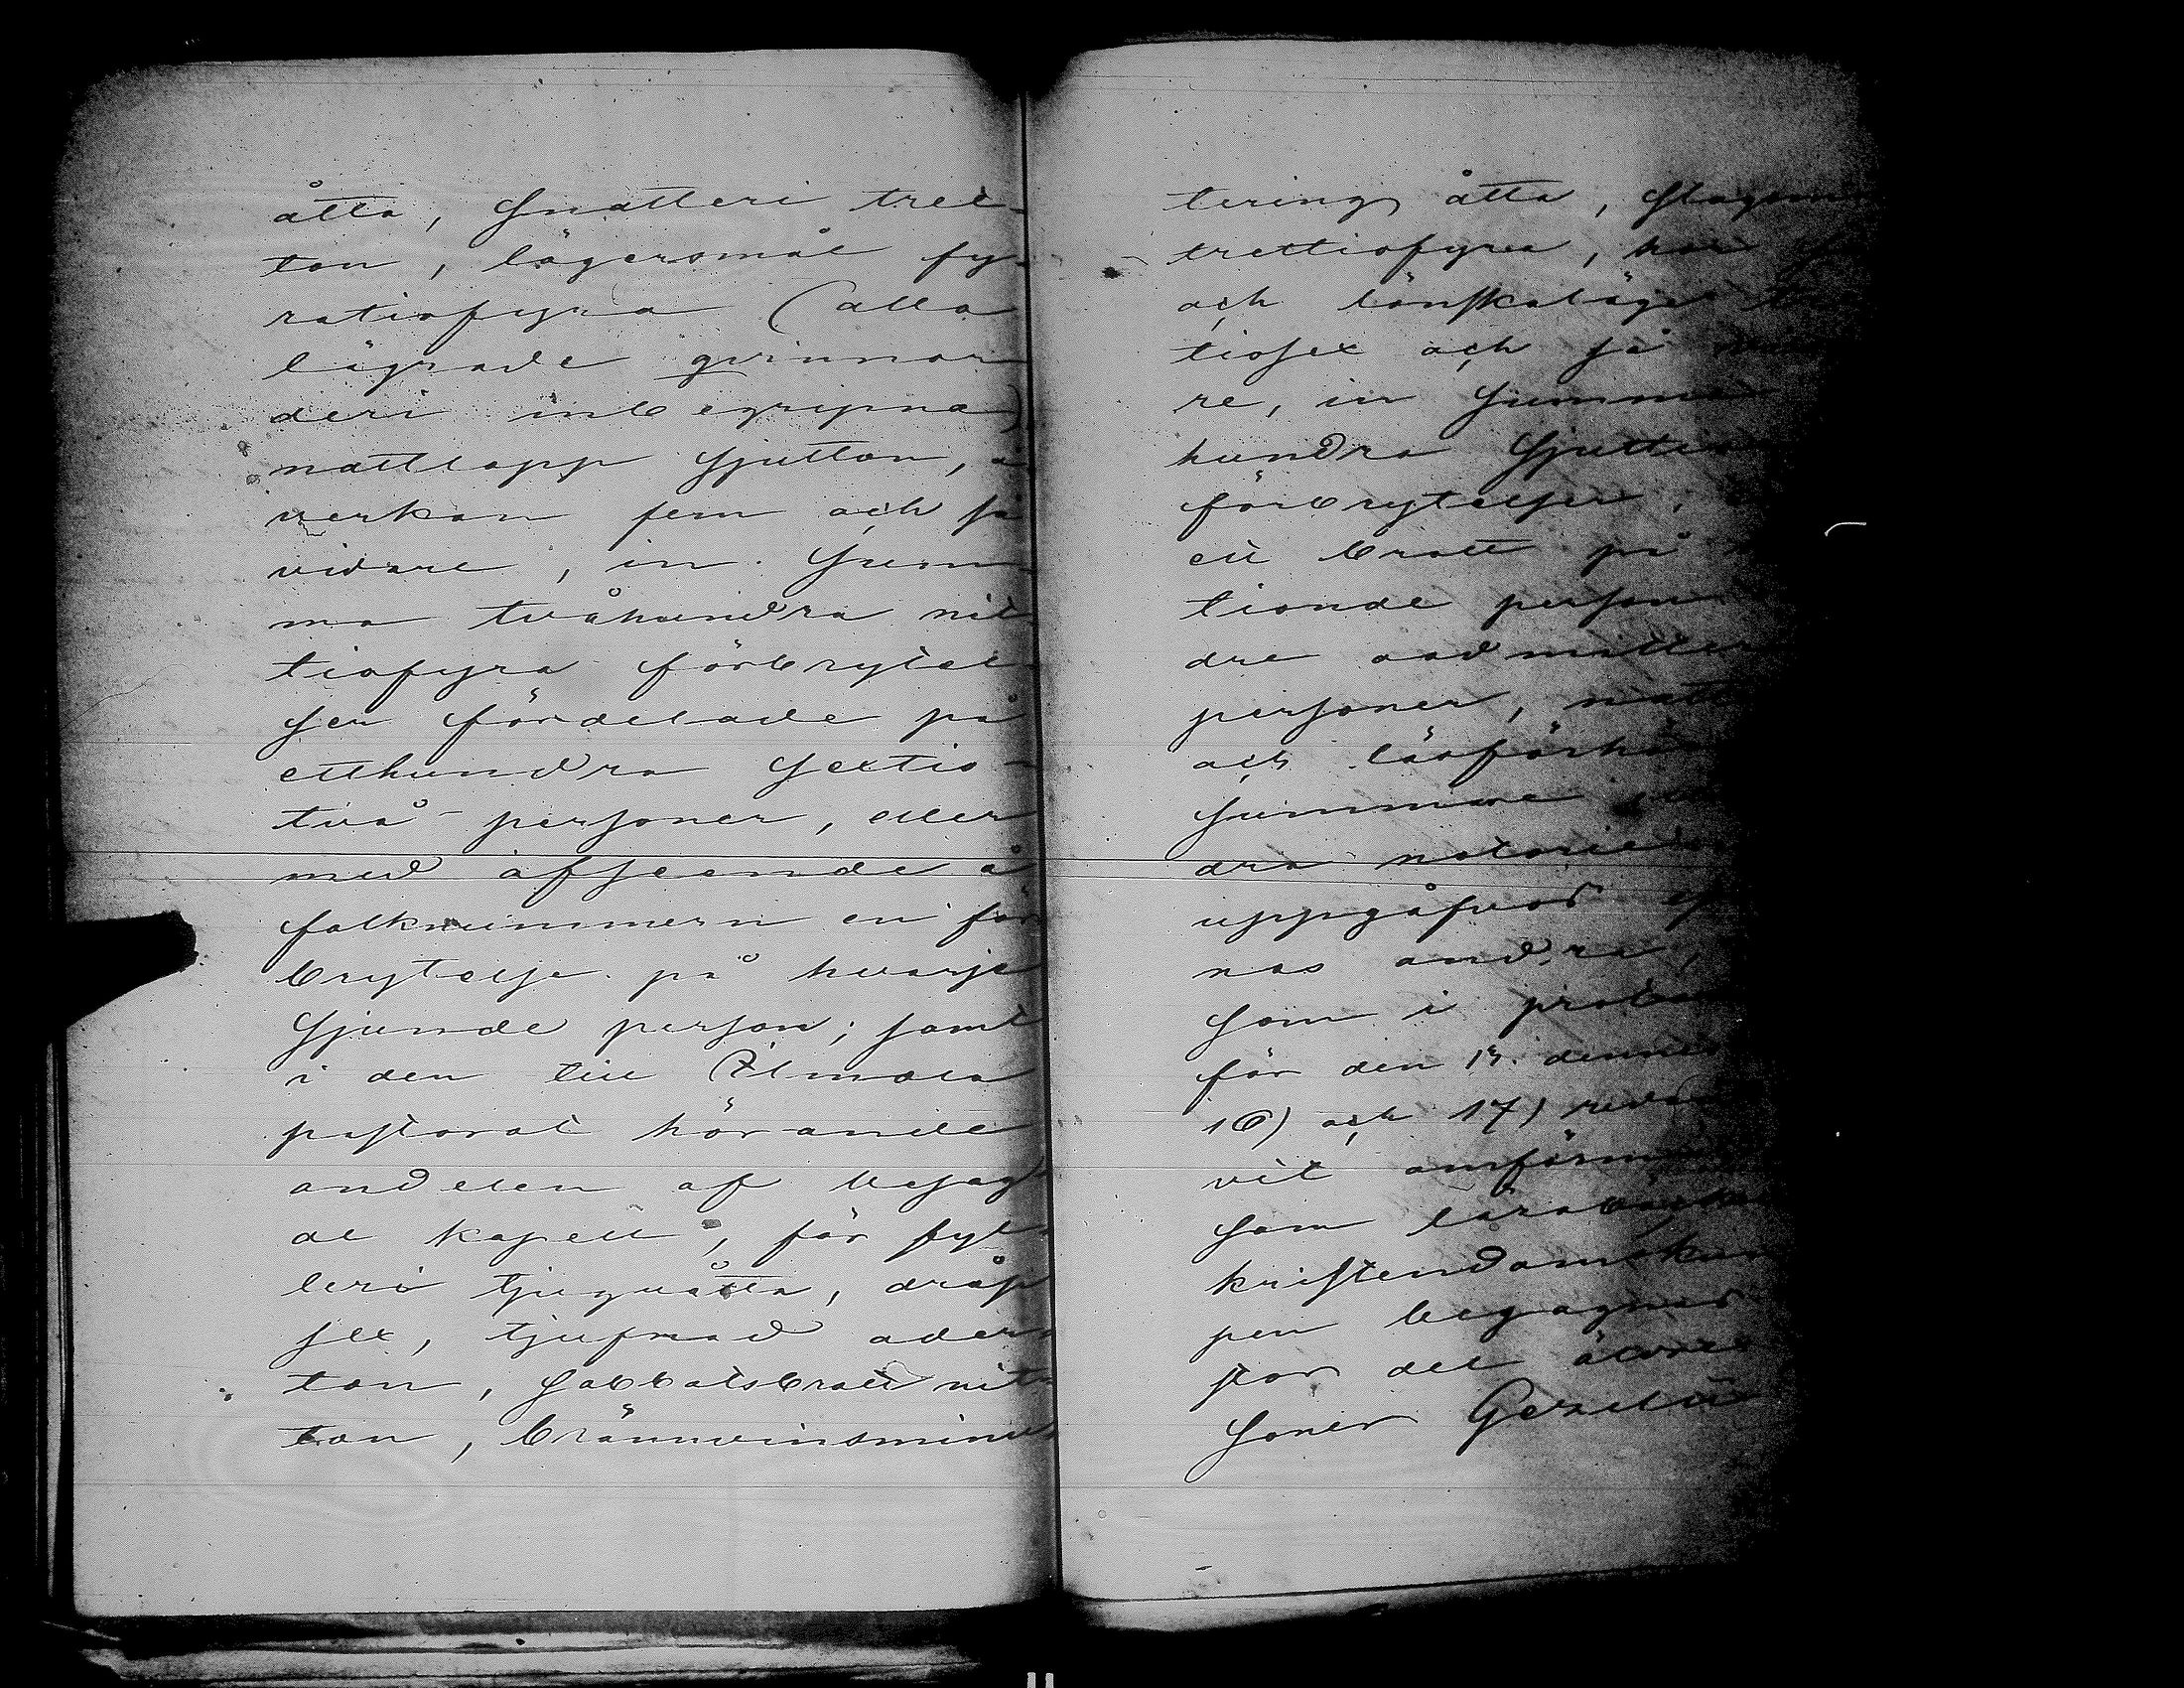 åtta, snatteri tret-
ton, lägersmål fy-
ratiofyra (alla
lägrade qvinnor
deri inbegripna)
nattlopp sjutton, å
verkan fem och så
vidare, in Sum-
ma tvåhundra nit-
tiofyra förbrytel-
ser fördelade på
etthundra sextio-
två personer, eller
med afseende å
folknummern en för
brytelse på hvarje
sjunde person; samt
i den till Ilmola
pastorat hörande
andelen af besag
de kapell, för fyl-
leri tjuguåtta, dråp
sex, tjufnad ader-
ton, sabbatsbrott nit-
ton, brännvinsminu-
tering åtta,
trettiofyra, hor
och lönskaläge
tiosex och så
re, in Summa
hundra sjuttio
förbrytelser,
ett brott på
tionde person
dre
personer, natt
och läsförhör

dra
uppgåfvos
nas andra,
som i
för den 15 dennes
16) och 17) redan
vit omförm
som lärobok
kristendomskun
pen begagnas
stor del äldre
soner Gezelii